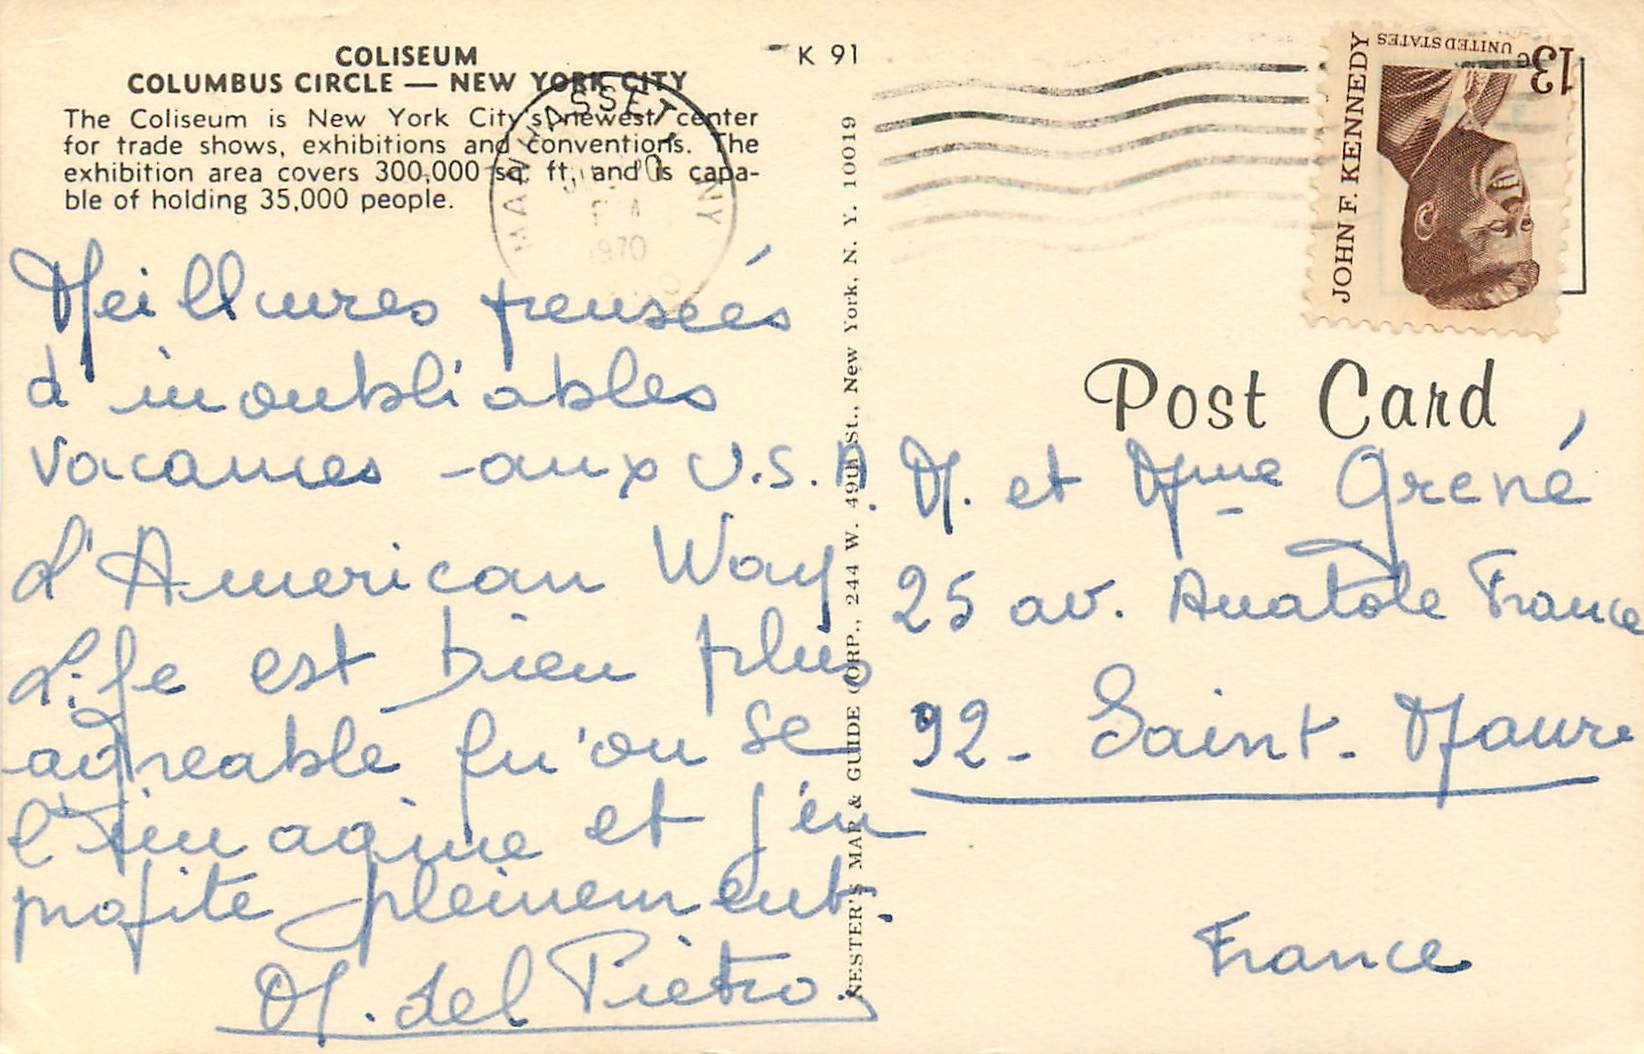 COLISEUM
COLUMBUS CIRCLE — NEW YORK CITY
The Coliseum is New York City's newest center
for trade shows, exhibitions and conventions. The
exhibition area covers 300,000 sq. ft. and is capa-
ble of holding 35,000 people.
K 91
MANHASSET NY
1970
UNITED STATES
13c
JOHN F. KENNEDY
Post Card
Meilleures pensées
d'inoubliables
vacances aux U.S.A.
L'American Way
Life est bien plus
agreable qu'on se
l'imagine et j'en
profite pleinement.
M. del Pietro.
NESTER'S MAP & GUIDE CORP., 244 W. 49th St., New York, N. Y. 10019
M. et Mme Grené
25 av. Anatole France
92 - Saint-Maure
France